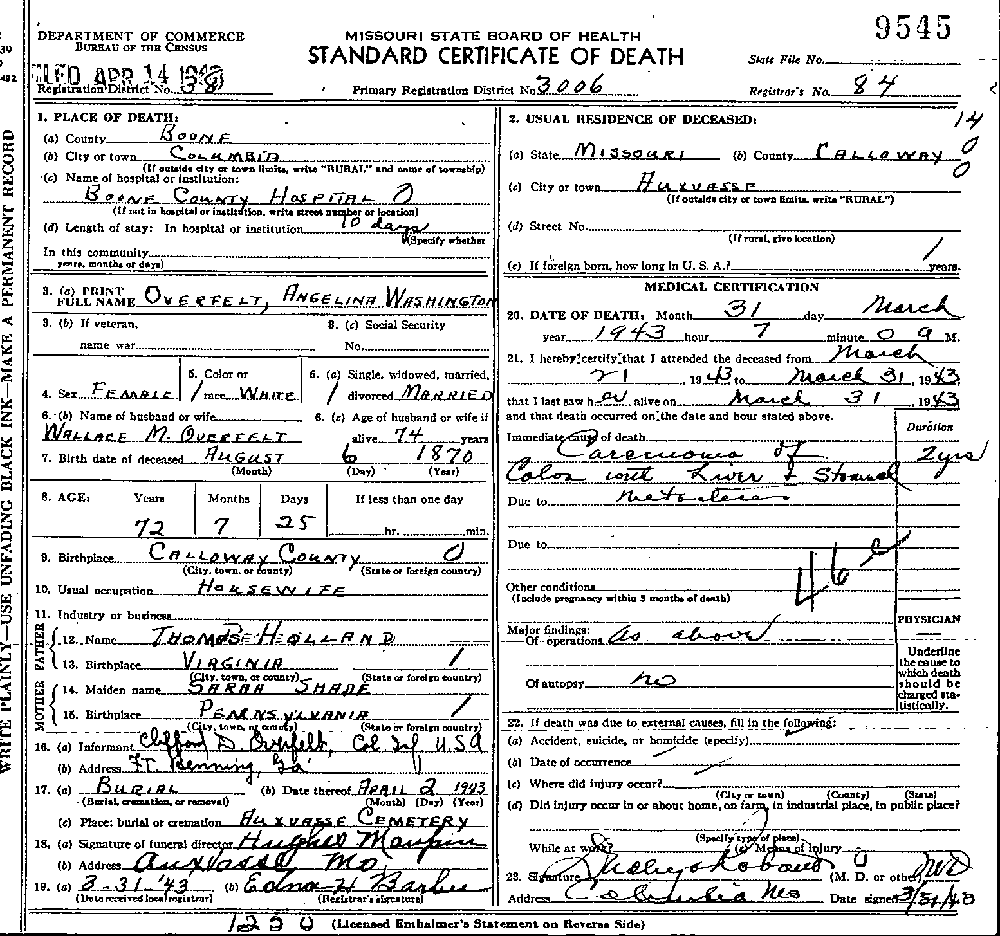 9545
DEPARTMENT OF COMMERCE
BUREAU OF THE CENSUS
MISSOURI STATE BOARD OF HEALTH
STANDARD CERTIFICATE OF DEATH
State File No.
APR 14
Registration District No. 38
Primary Registration District No. 3006
Registrar's No. 84
WRITE PLAINLY—USE UNFADING BLACK INK—MAKE A PERMANENT RECORD
1. PLACE OF DEATH:
(a) County BOONE
(b) City or town COLUMBIA
(If outside city or town limits, write "RURAL" and name of township)
(c) Name of hospital or institution:
BOONE COUNTY HOSPITAL 0
(If not in hospital or institution, write street number or location)
(d) Length of stay: In hospital or institution 10 days
(Specify whether
In this community
years, months or days)
3. (a) PRINT FULL NAME OVERFELT, ANGELINA WASHINGTON
3. (b) If veteran, name war
3. (c) Social Security No.
4. Sex FEMALE
5. Color or race WHITE
6. (a) Single, widowed, married, divorced MARRIED
6. (b) Name of husband or wife
WALLACE M. OVERFELT
6. (c) Age of husband or wife if alive 74 years
7. Birth date of deceased AUGUST 6 1870
(Month) (Day) (Year)
8. AGE: Years Months Days If less than one day
72 7 25 hr. min.
9. Birthplace CALLOWAY COUNTY 0
(City, town, or county) (State or foreign country)
10. Usual occupation HOUSEWIFE
11. Industry or business
FATHER
12. Name THOMAS HOLLAND
13. Birthplace VIRGINIA 1
(City, town, or county) (State or foreign country)
MOTHER
14. Maiden name SARAH SHADE
15. Birthplace PENNSYLVANIA 1
(City, town, or county) (State or foreign country)
16. (a) Informant Clifford D. Overfelt, Col Inf USA
(b) Address Ft. Benning, Ga
17. (a) BURIAL (b) Date thereof APRIL 2 1943
(Burial, cremation, or removal) (Month) (Day) (Year)
(c) Place: burial or cremation AUXVASSE CEMETERY
18. (a) Signature of funeral director Hughes Maupin
(b) Address Auxvasse Mo
19. (a) 3-31-'43 (b) Edna H Barber
(Date received local registrar) (Registrar's signature)
2. USUAL RESIDENCE OF DECEASED:
14
0
0
(a) State MISSOURI (b) County CALLOWAY
(c) City or town AUXVASSE
(If outside city or town limits, write "RURAL")
(d) Street No.
(If rural, give location)
(e) If foreign born, how long in U. S. A.? years.
MEDICAL CERTIFICATION
20. DATE OF DEATH: Month 31 day March
year 1943 hour 7 minute 09 M.
21. I hereby certify that I attended the deceased from March
21, 1943 to March 31, 1943
that I last saw her alive on March 31, 1943
and that death occurred on the date and hour stated above.
Duration
Immediate cause of death
Carcinoma of 2 yrs
Colon with Liver & Stomach
Due to metastases
Due to
46e
Other conditions
(Include pregnancy within 3 months of death)
PHYSICIAN
Major findings:
Of operations As above
Of autopsy no
Underline the cause to which death should be charged statistically.
22. If death was due to external causes, fill in the following:
(a) Accident, suicide, or homicide (specify)
(b) Date of occurrence
(c) Where did injury occur?
(City or town) (County) (State)
(d) Did injury occur in or about home, on farm, in industrial place, in public place?
(Specify type of place)
While at work? (e) Means of injury
23. Signature (M. D. or other) MD
Address Columbia Mo Date signed 3/31/43
1230 (Licensed Embalmer's Statement on Reverse Side)